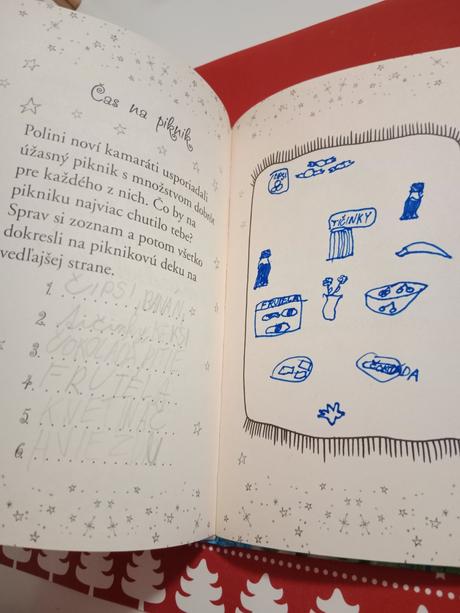 Čas na piknik
Polini noví kamaráti usporiadali
úžasný piknik s množstvom dobrôt
pre každého z nich. Čo by na
pikniku najviac chutilo tebe?
Sprav si zoznam a potom všetko
dokresli na piknikovú deku na
vedľajšej strane.
1. ČIPSI BANÁN
2. tičinky KEKSI
3. ČOKOLÁDA PITIE
4. FRUTELA
5.
6.
TIČINKY
FRUTELA